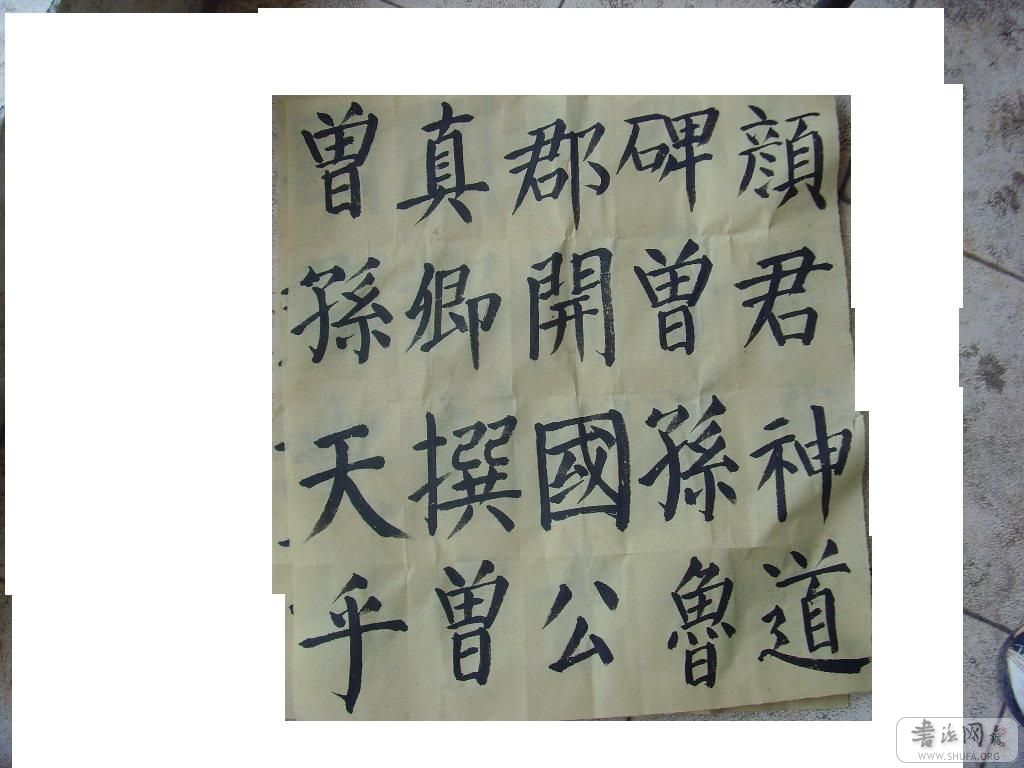 顔君神道
碑曾孫魯
郡開國公
真卿撰曾
孫天乎
書法网
WWW.SHUFA.ORG